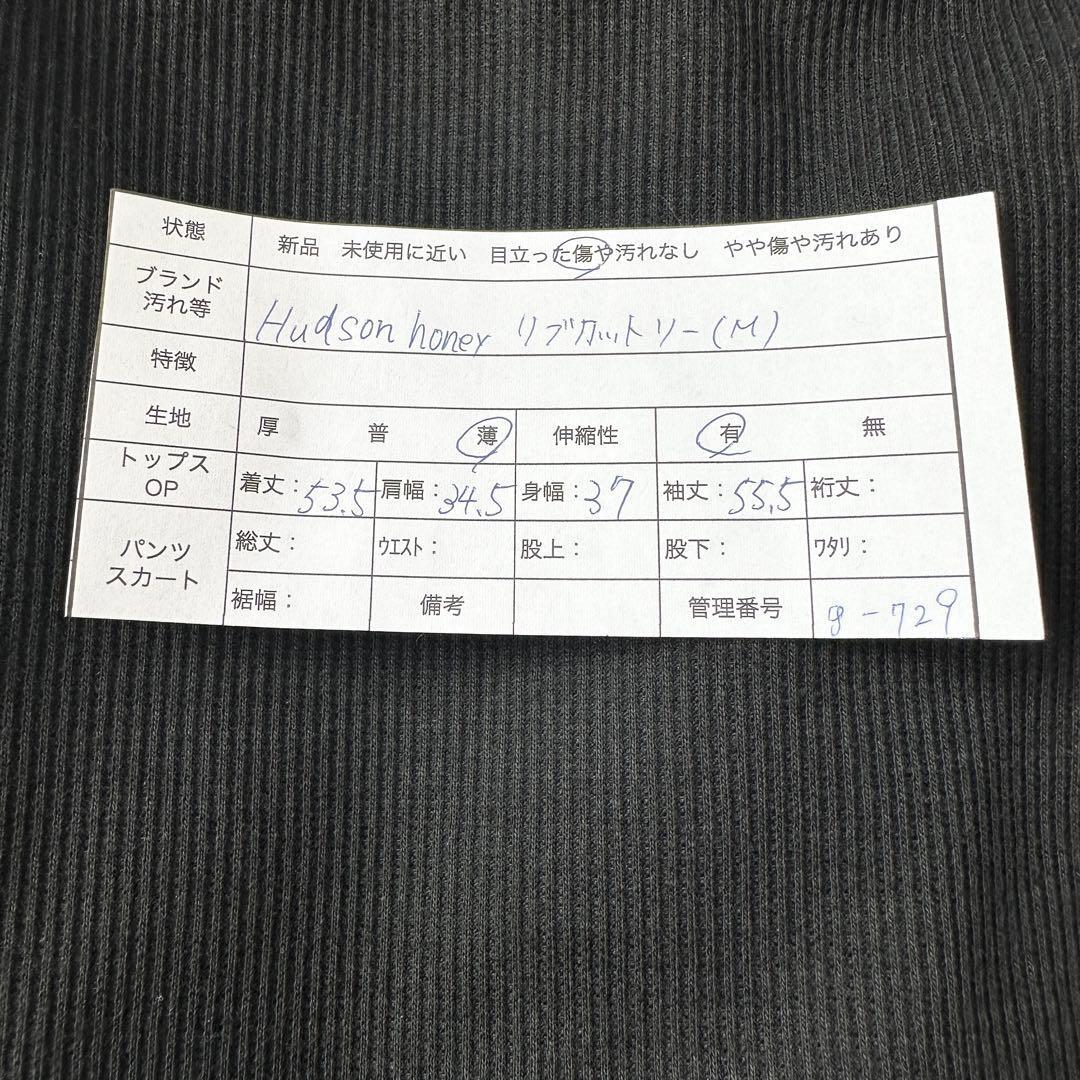 状態 新品 未使用に近い 目立った傷や汚れなし やや傷や汚れあり
ブランド
汚れ等
Hudson honey リブカットソー(M)
特徴
生地 厚 普 薄 伸縮性 有 無
トップス
OP
着丈:53.5 肩幅:34.5 身幅:37 袖丈:55.5 裄丈:
パンツ
スカート
総丈: ウエスト: 股上: 股下: ワタリ:
裾幅: 備考 管理番号 g-729